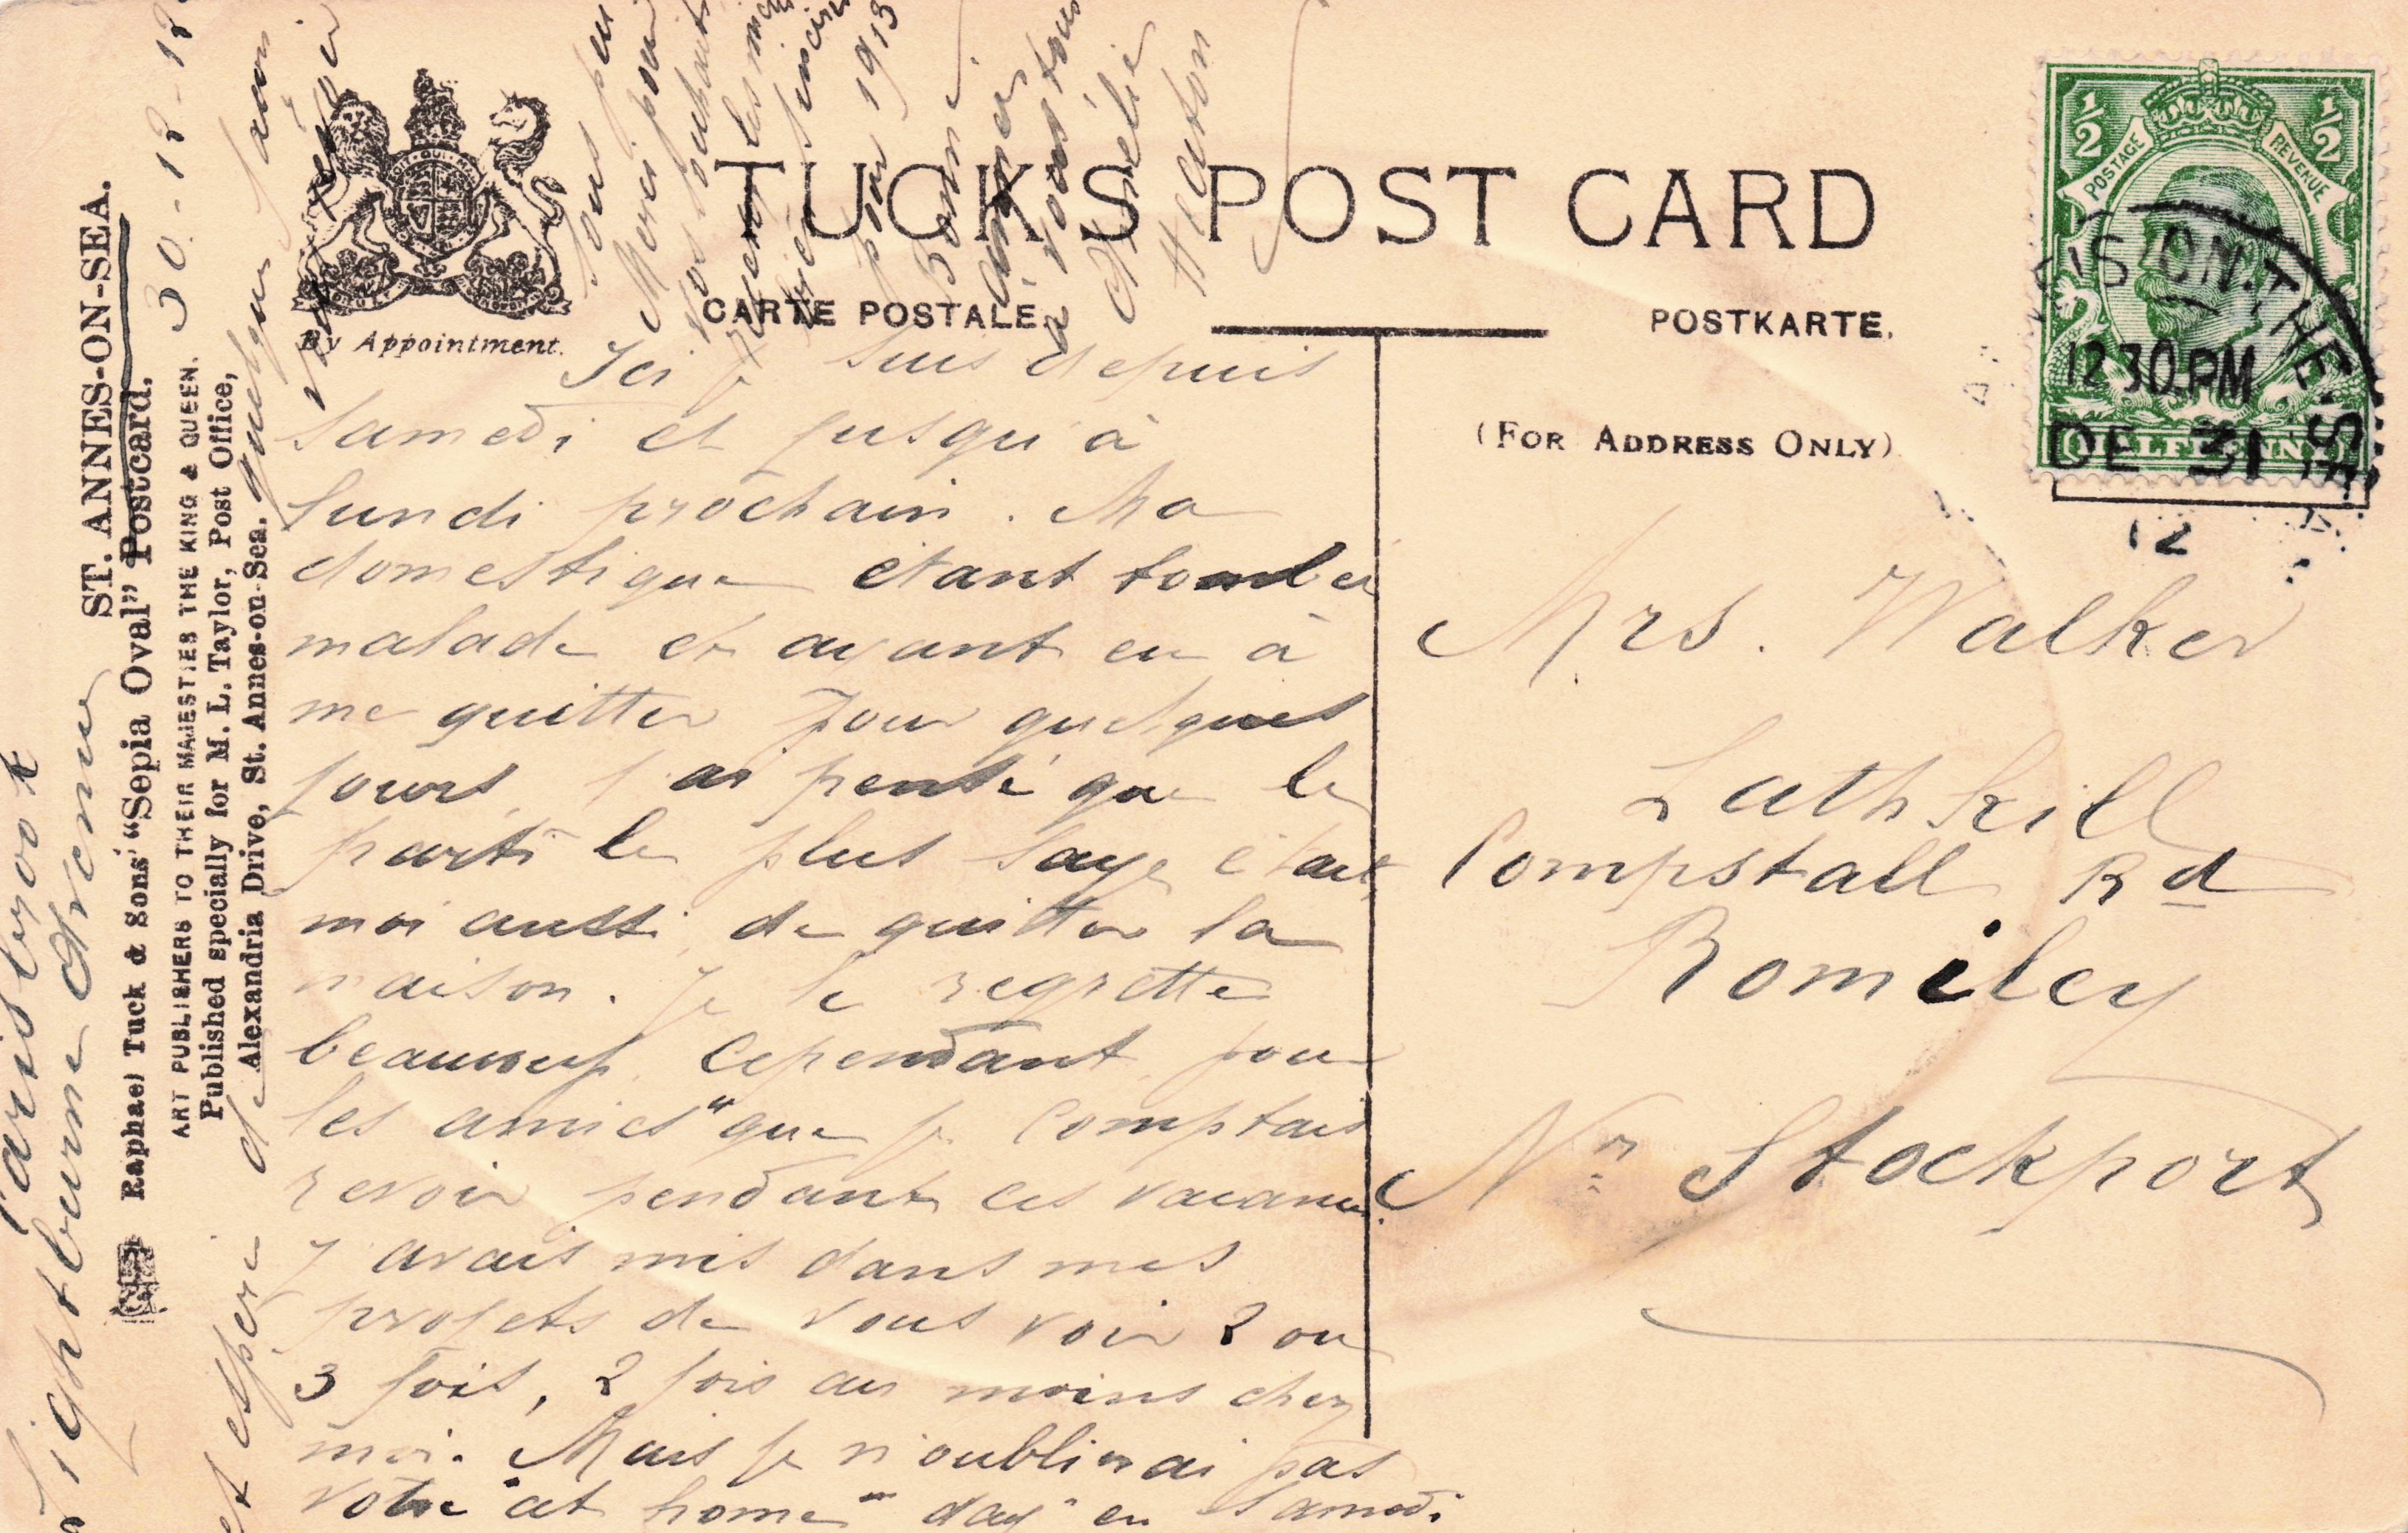 TUCK'S POST CARD
CARTE POSTALE.
POSTKARTE.
By Appointment.
(FOR ADDRESS ONLY)
POSTAGE
REVENUE
1/2
1/2
HALFPENNY
ON.THE.SEA
12 30.PM
DE 31
12
ST. ANNES-ON-SEA.
Raphael Tuck & Sons' "Sepia Oval" Postcard.
ART PUBLISHERS TO THEIR MAJESTIES THE KING & QUEEN.
Published specially for M. L. Taylor, Post Office,
Alexandria Drive, St. Annes-on-Sea.
Carisbrook
Lightburne Avenue
30-12-12
Ici je suis depuis
samedi et jusqu'à
lundi prochain. Ma
domestique étant tombée
malade et ayant eu à
me quitter pour quelques
jours, j'ai pensé que le
parti le plus sage était
moi aussi de quitter la
maison. Je le regrette
beaucoup cependant pour
les amies "que je comptais
revoir pendant ces vacances.
J'avais mis dans mes
projets de vous voir 2 ou
3 fois, 2 fois au moins chez
moi. Mais je n'oublierai pas
votre "at home" day" en samedi
et espère de quelque façon
vous
Merci pour
vos souhaits
recevez les miens
sincères
pour 1913
Bonne
année
à vous tous
Amélie
Heaton
Mrs. Walker
Lathkill
Compstall Rd
Romiley
Nr Stockport